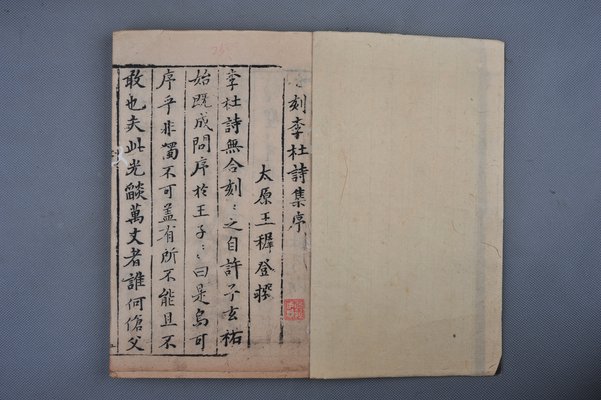 刻李杜詩集序
太原王穉登撰
李杜詩無合刻〻之自許子玄祐
始既成問序於王子〻曰是烏可
序乎非獨不可盖有所不能且不
敢也夫此光燄萬丈者誰何傖父